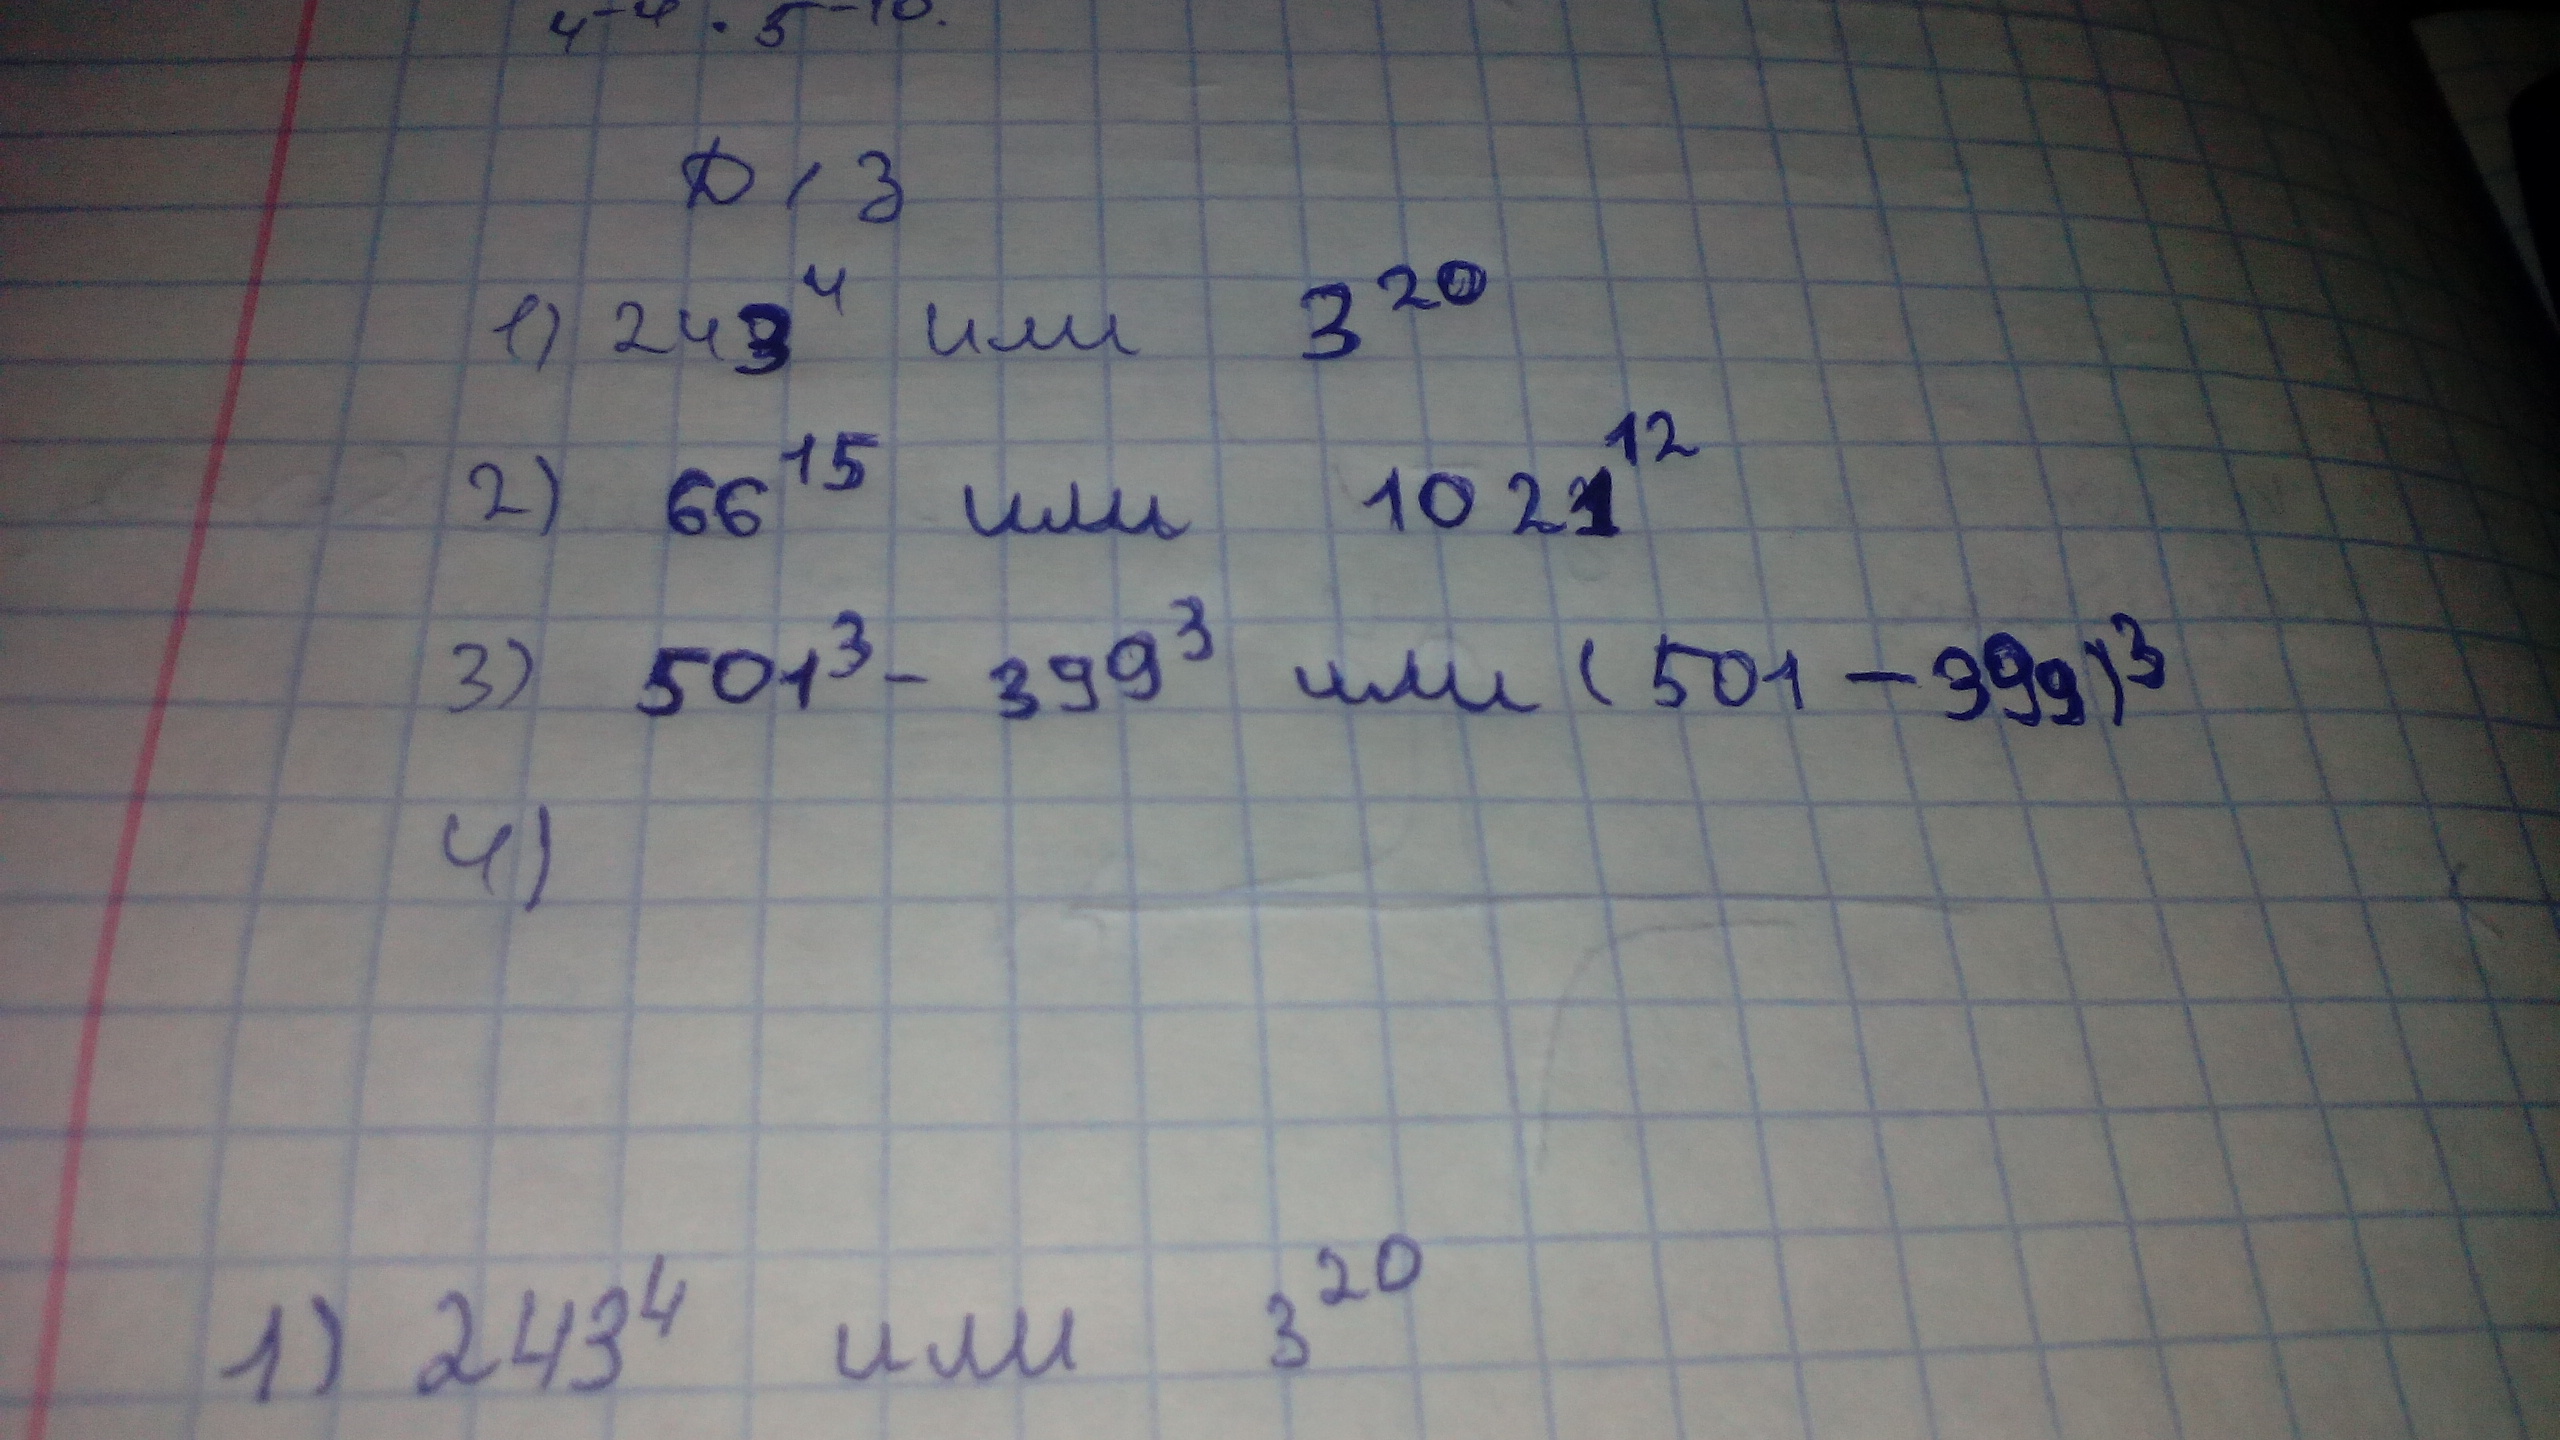 4⁻⁴ · 5⁻¹⁰.
Д/З
1) 243⁴ или 3²⁰
2) 66¹⁵ или 1021¹²
3) 501³ - 399³ или (501 - 399)³
4)
1) 243⁴ или 3²⁰